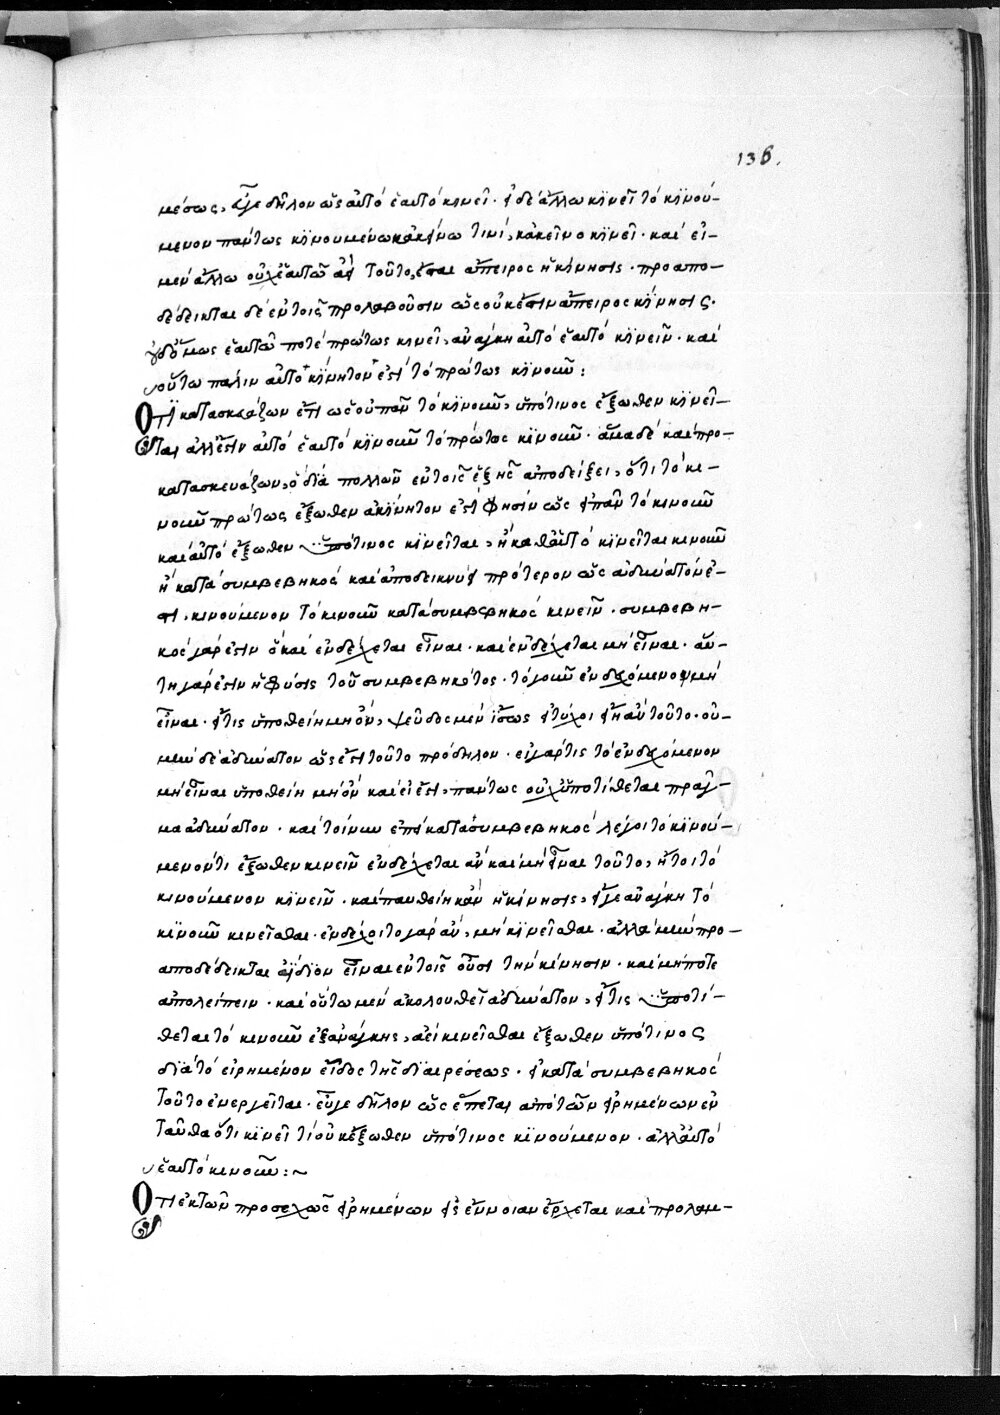 136.
μέσως, εὖγε δῆλον ὡς αὐτὸ ἑαυτὸ κινεῖ · εἰ δὲ ἄλλω κϊνεῖ τὸ κϊνού-
μενον πάντως κϊνουμένω κἀκείνω τινί, κἀκεῖνο κϊνεῖ · καὶ εἰ-
μὲν ἄλλω οὐχ ἑαυτῶ ἀεὶ τοῦτο, ἔσται ἄπειρος ἡ κίνησις · προαπο-
δέδεικται δὲ ἐν τοῖς προλαβοῦσιν ὡς οὐκ ἔστιν ἄπειρος κϊνησις ·
εἰ δ' ὅμως ἑαυτῶ ποτὲ πρώτως κινεῖ, ἀνάγκη αὐτὸ ἑαυτὸ κϊνεῖν · καὶ
οὕτω πάλιν αὐτο κϊνητον ἐστὶ τὸ πρώτως κϊνοῦν :
Ὅτι κατασκευάζων ἔτι ὡς οὐ πᾶν τὸ κϊνοῦν, ὑπό τινος ἔξωθεν κϊνεῖ-
ται ἀλλ' ἔστιν αὐτὸ ἑαυτὸ κϊνοῦν τὸ πρώτως κϊνοῦν · ἅμα δὲ καὶ προ-
κατασκευάζων, ὃ διὰ πολλῶν ἐν τοῖς ἑξῆς ἀποδείξει, ὅτι τὸ κι-
νοῦν πρώτως ἔξωθεν ἀκίνητον ἐστὶ φησὶν ὡς εἰ πᾶν τὸ κινοῦν
καὶ αὐτὸ ἔξωθεν ὑπό τινος κϊνεῖται, ἢ καθ' αὑτὸ κϊνεῖται κινοῦν
ἢ κατὰ συμβεβηκὸς καὶ ἀποδεικνύει πρότερον ὡς ἀδύνατον ἐ-
στι, κινούμενον τὸ κινοῦν κατὰ συμβεβηκὸς κινεῖν · συμβεβη-
κὸς γάρ ἐστιν ὃ καὶ ἐνδέχεται εἶναι · καὶ ἐνδέχεται μὴ εἶναι · αὕ-
τη γάρ ἐστιν ἡ φύσις τοῦ συμβεβηκότος · τὸ γοῦν ἐνδεχόμενον μὴ
εἶναι · εἴ τις ὑποθείη μὴ ὄν, ψεῦδος μὲν ἴσως εἰ τύχοι εἴη ἂν τοῦτο · οὐ-
μὴν δὲ ἀδύνατον ὡς ἔστι τοῦτο πρόδηλον · εἰ γάρ τις τὸ ἐνδεχόμενον
μὴ εἶναι ὑποθείη μὴ ὂν καὶ εἰ ἔστι, πάντως οὐχ ὑποτίθεται πρᾶγ-
μα ἀδύνατον · καὶ τοίνυν ἐπεὶ κατὰ συμβεβηκὸς λέγοι τὸ κϊνού-
μενόν τι ἔξωθεν κινεῖν ἐνδέχεται ἂν καὶ μὴ εἶναι τοῦτο, ἤτοι τὸ
κινούμενον κϊνεῖν · καὶ παυθείη κἂν ἡ κίνησις, εἴγε ἀνάγκη τὸ
κϊνοῦν κινεῖσθαι · ἐνδέχοιτο γὰρ ἂν, μὴ κϊνεῖσθαι · ἀλλὰ μὴν προ-
αποδέδεικται ἀΐδϊον εἶναι ἐν τοῖς οὖσι τὴν κίνησιν · καὶ μήποτε
ἀπολείπειν · καὶ οὕτω μὲν ἀκολουθεῖ ἀδύνατον, εἴ τις ὑποτί-
θεται τὸ κινοῦν ἐξ ἀνάγκης, ἀεὶ κινεῖσθαι ἔξωθεν ὑπό τινος
διὰ τὸ εἰρημένον εἶδος τῆς διαιρέσεως · εἰ κατὰ συμβεβηκὸς
τοῦτο ἐνεργεῖται · εὖγε δῆλον ὡς ἕπεται ἀπὸ τῶν εἰρημένων ἐν
ταῦθα ὅτι κϊνεῖ τι οὐκ ἔξωθεν ὑπό τινος κϊνούμενον · ἀλλ' αὐτὸ
ἑαυτὸ κινοῦν : ~
Ὅτι ἐκ τῶν προσεχῶς εἰρημένων εἰς ἔννοιαν ἔρχεται καὶ προλαμ-